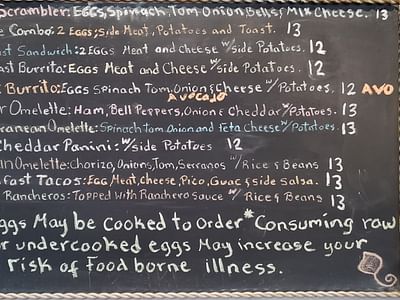 Scrambler: Eggs, Spinach, Tom, Onion, Bells, & Mix Cheese. 13
e Combo: 2 Eggs, Side Meat, Potatoes and Toast. 13
ast Sandwich: 2 Eggs Meat and Cheese w/side Potatoes. 12
ast Burrito: Eggs Meat and Cheese w/side Potatoes. 12
Burrito: Eggs Spinach Tom, Onion & Cheese w/Potatoes. 12 Avo
Avocado
r Omelette: Ham, Bell Peppers, Onion & Cheddar w/Potatoes. 13
ranean Omelette: Spinach Tom Onion and Feta Cheese w/Potatoes. 13
Cheddar Panini: w/side Potatoes 12
an Omelette: Chorizo, Onions, Tom, Serranos w/Rice & Beans 13
kfast Tacos: Egg, Meat, Cheese, Pico, Guac & side Salsa. 13
Rancheros: Topped with Ranchero Sauce w/Rice & Beans 13
ggs May be Cooked to Order * Consuming raw
or undercooked eggs May increase your
risk of Food borne illness.